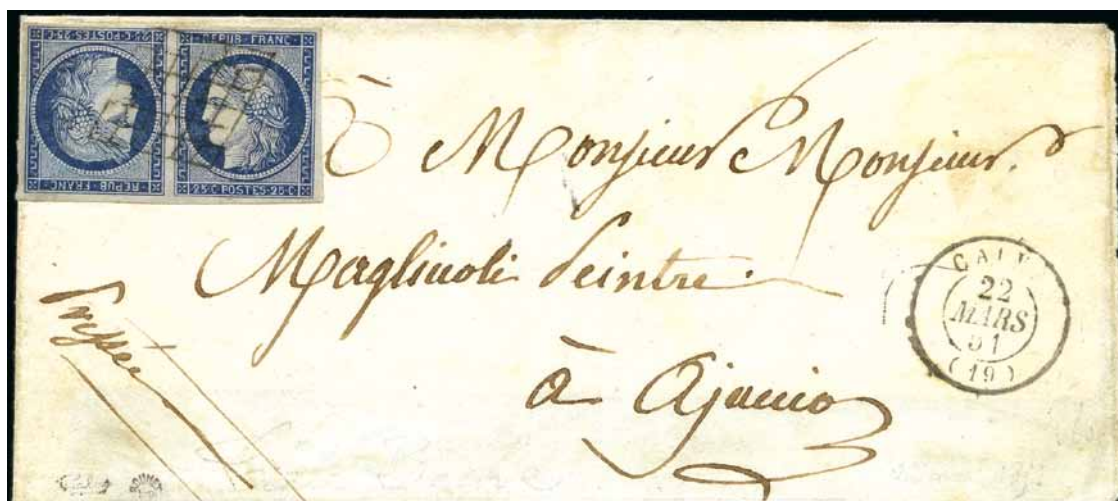 25·C·POSTES·25·C
REPUB·FRANC·
REPUB·FRANC·
25·C·POSTES·25·C
à Monsieur Monsieur
Magliucoli Peintre
à Ajaccio
Pressée
CALV
22
MARS
51
(19)